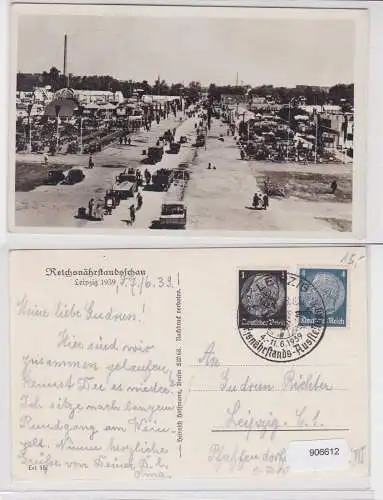 Reichsnährstandsschau
Leipzig 1939
7./6.39.
Meine liebe Gudrun!
Hier sind wir
zusammen gelaufen,
kennst Du es wieder?
Ich sitze nach langem
Rundgang am Wein-
Nimm herzliche
Grüße von Deiner
Oma.
Heinrich Hoffmann, Berlin Nachdruck verboten.
1
Deutsches Reich
4
Deutsches Reich
LEIPZIG
4.-11.6.1939
Reichsnährstands-Ausstellung
An
Gudrun Richter
Leipzig
15,-
906612